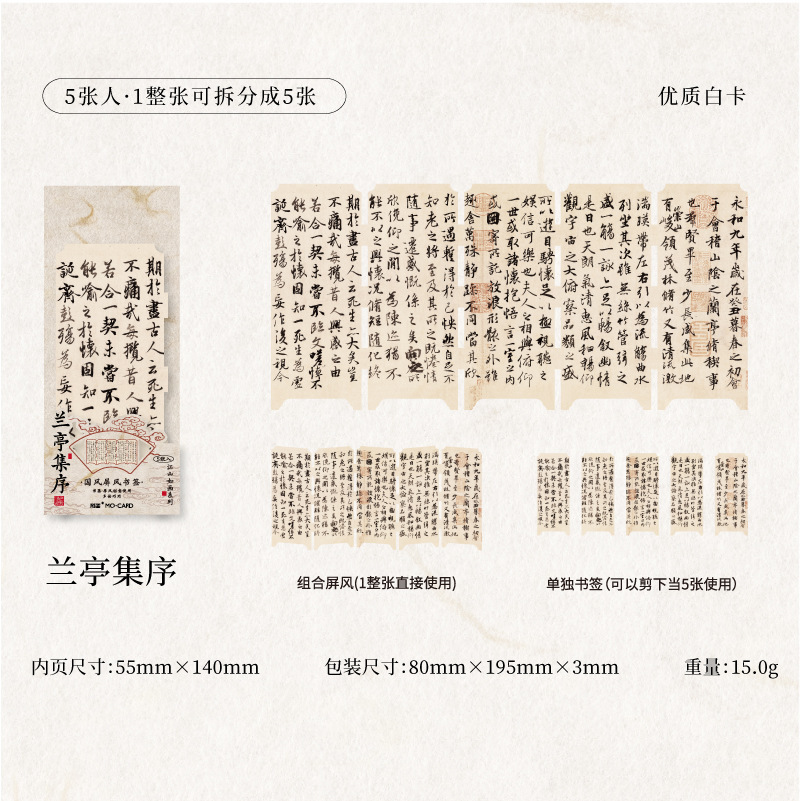 5张入·1整张可拆分成5张
优质白卡
期於盡古人云死生亦
不痛哉每攬昔人興
若合一契未嘗不臨
能喻之於懷固知一
誕齊彭殤為妄作
兰亭集序
5枚入
江山如画系列
·国风屏风书签·
MO·CARD
永和九年歲在癸丑暮春之初會
于會稽山陰之蘭亭脩稧事
也羣賢畢至少長咸集此地
有崇山峻領茂林脩竹又有清流激
湍暎帶左右引以為流觴曲水
列坐其次雖無絲竹管弦之
盛一觴一詠亦足以暢敘幽情
是日也天朗氣清惠風和暢仰
觀宇宙之大俯察品類之盛
所以遊目騁懷足以極視聽之
娛信可樂也夫人之相與俯仰
一世或取諸懷抱悟言一室之內
或因寄所託放浪形骸之外雖
趣舍萬殊靜躁不同當其欣
於所遇蹔得於己怏然自足不
知老之將至及其所之既惓情
隨事遷感慨係之矣向之所
欣俛仰之間以為陳迹猶不
能不以之興懷況脩短隨化終
期於盡古人云死生亦大矣豈
不痛哉每攬昔人興感之由
若合一契未嘗不臨文嗟悼不
能喻之於懷固知一死生為虛
誕齊彭殤為妄作後之視今
兰亭集序
组合屏风(1整张直接使用)
单独书签(可以剪下当5张使用)
内页尺寸:55mm×140mm
包装尺寸:80mm×195mm×3mm
重量:15.0g